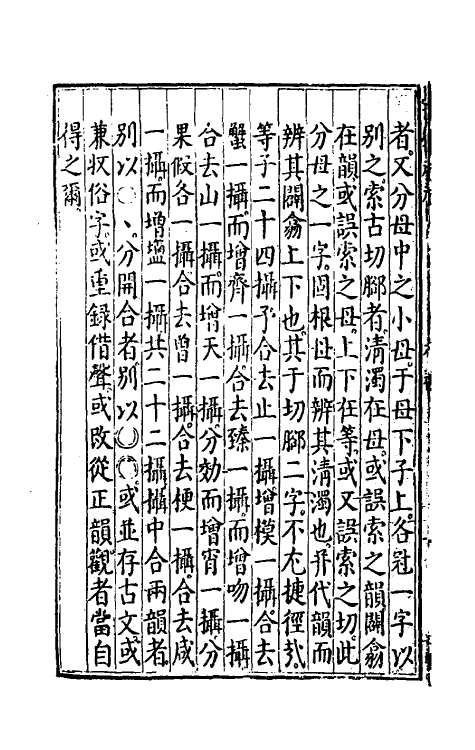 者又分母中之小母于母下子上各冠一字以
別之索古切腳者清濁在母或誤索之韻闢翕
在韻或誤索之母上下在等或又誤索之切此
分母之一字因根母而辨其清濁也并代韻而
辨其闢翕上下也其于切腳二字不尤捷徑哉
等子二十四攝予合去止一攝增模一攝合去
蟹一攝而增齊一攝合去臻一攝而增吻一攝
合去山一攝而增天一攝分効而增宵一攝分
果假各一攝合去曾一攝合去梗一攝合去咸
一攝而增鹽一攝共二十二攝攝中合兩韻者
別以〇、分開合者別以〇〇或並存古文或
兼收俗字或重錄借聲或改從正韻觀者當自
得之爾